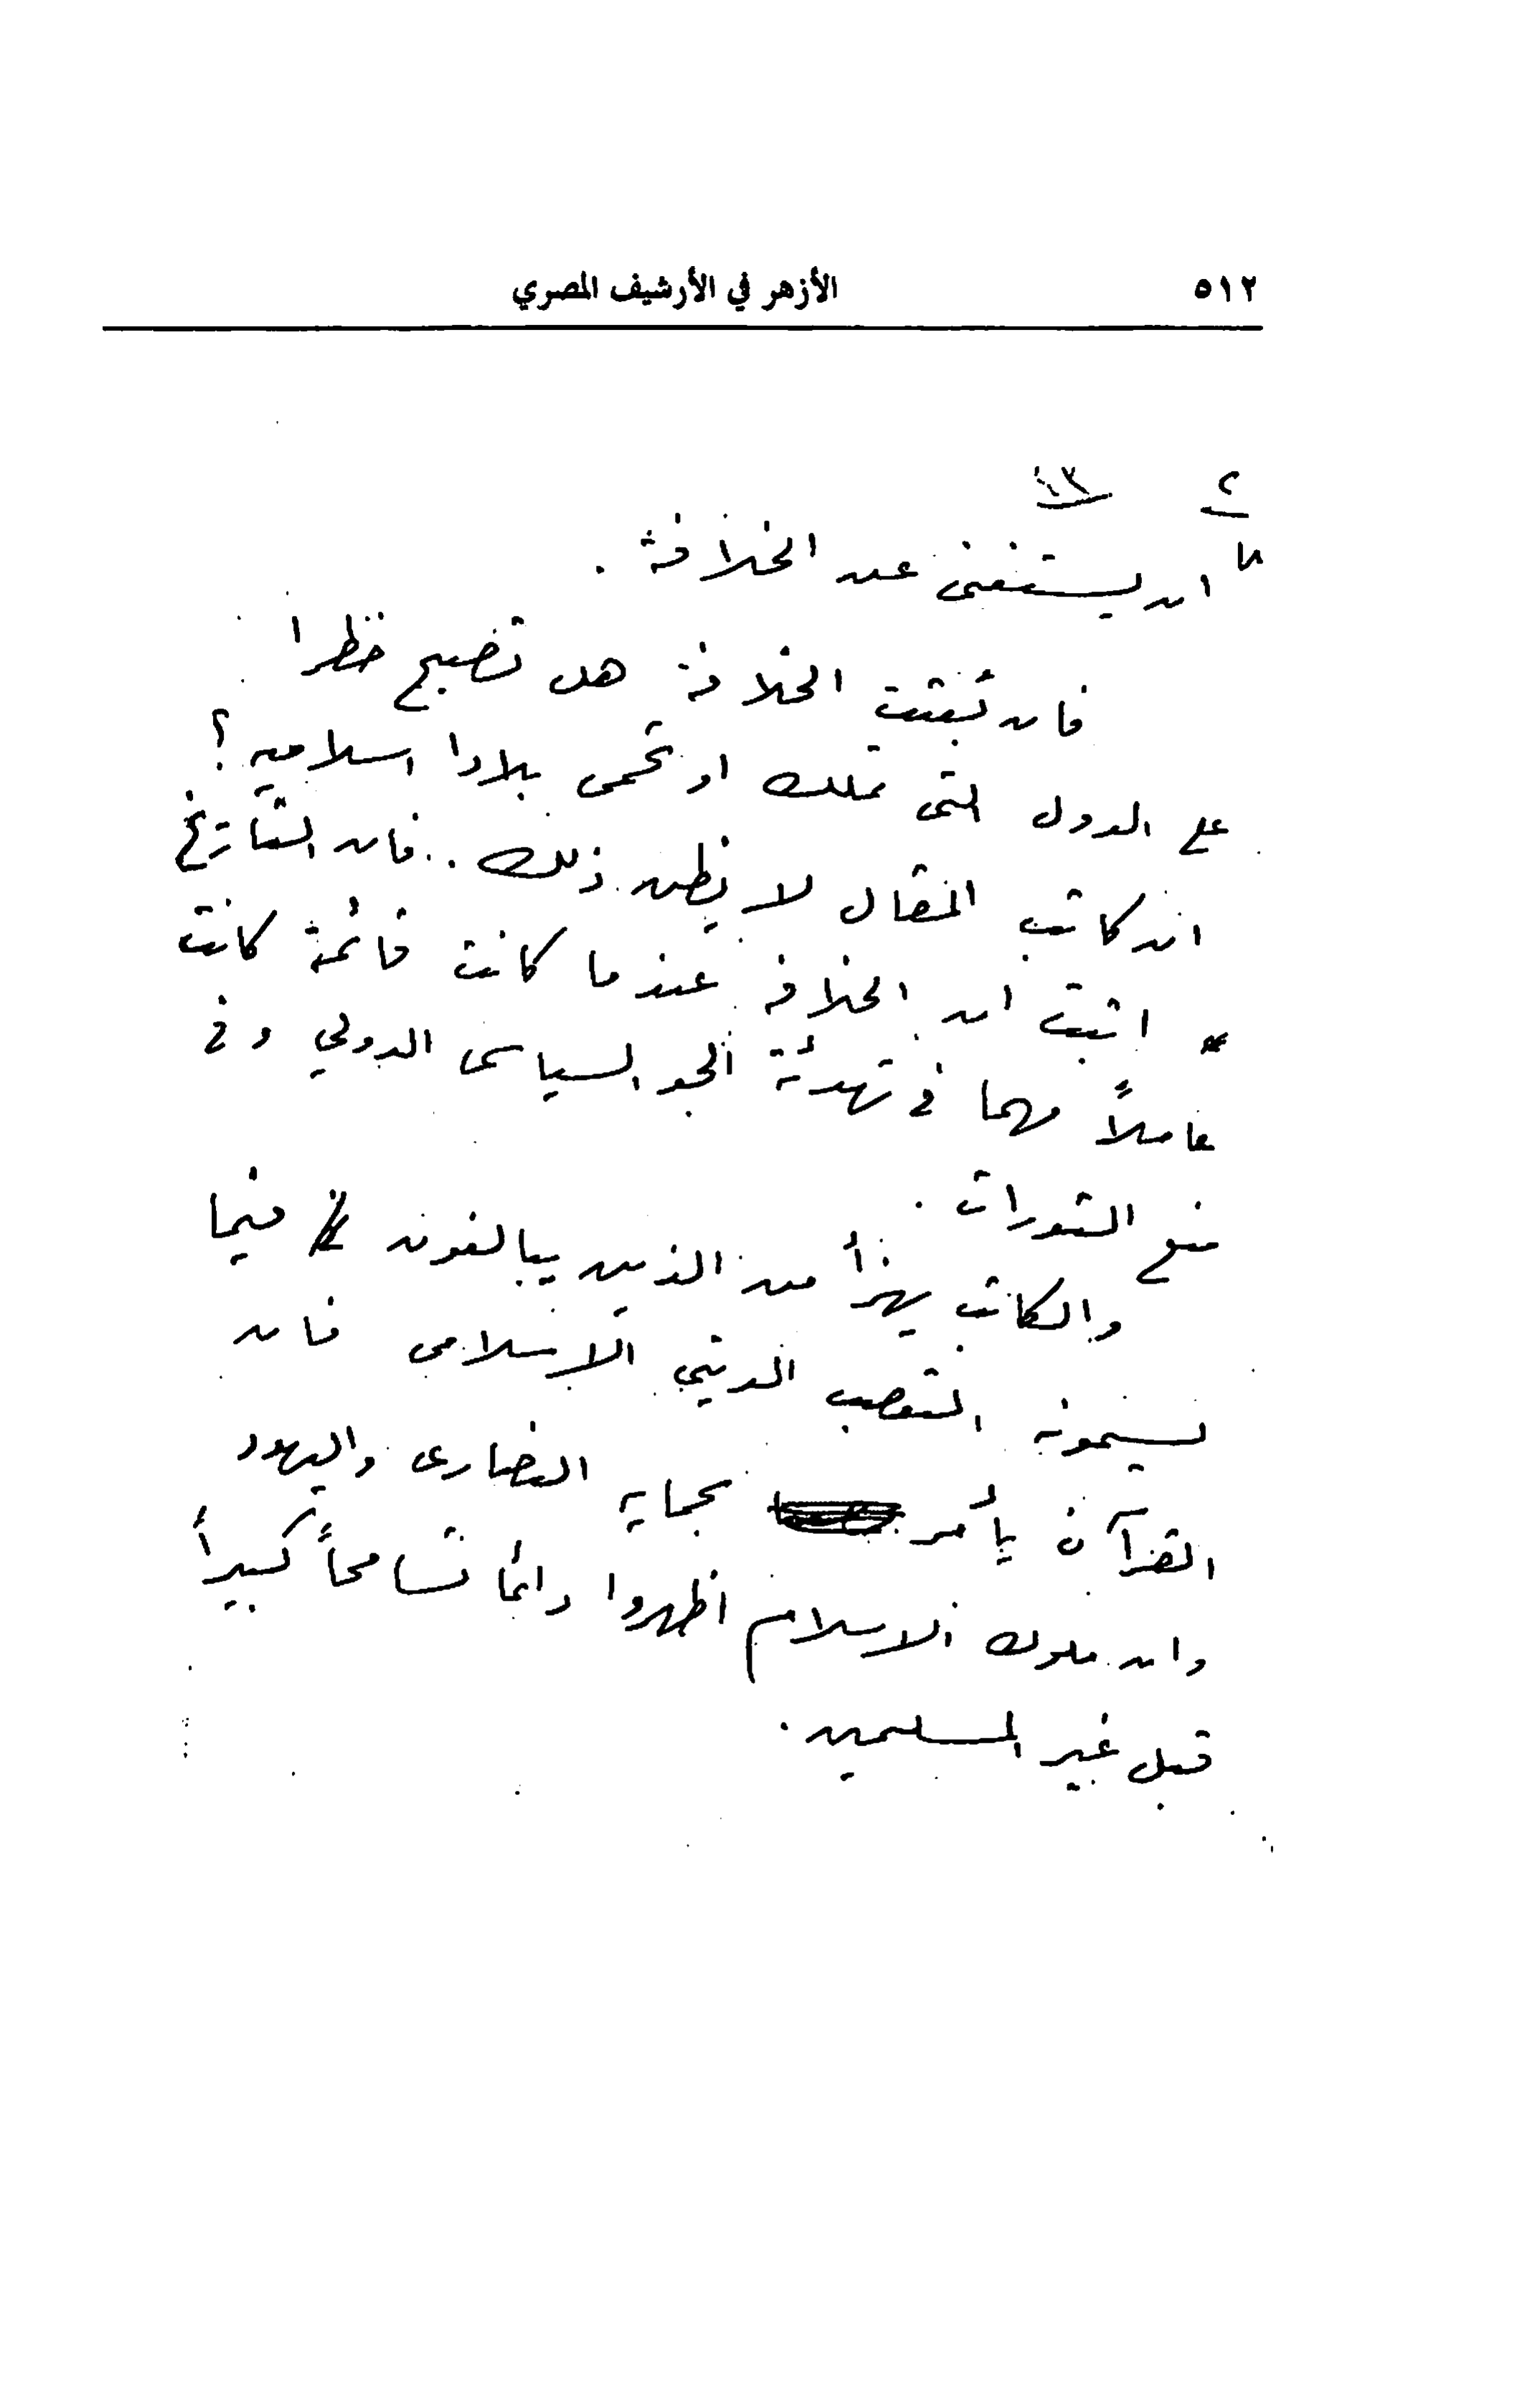 ٥١٢ الأزهر في الأرشيف المصري
٢ ١٣
ان يستغنى عن الخلافة .
فان بقيت الخلافة هل تصبح خطرا
على الدول التى تملك او تحمى بلادا اسلاميه ؟
ان كاتب المقال لا يظن ذلك .. فان التاريخ
اثبت ان الخلافه عندما كانت قائمة كانت
عاملاً مهما في تهدئة الجو السياسى الدولي وفي
منع الثورات .
والكاتب يهزأ من الذين يبالغون فيما
يسمونه التعصب الديني الاسلامى فان
القرآن يأمر بحمايه النصارى واليهود
وان ملوك الاسلام اظهروا دائما تسامحاً كبيراً
قبل غير المسلمين .